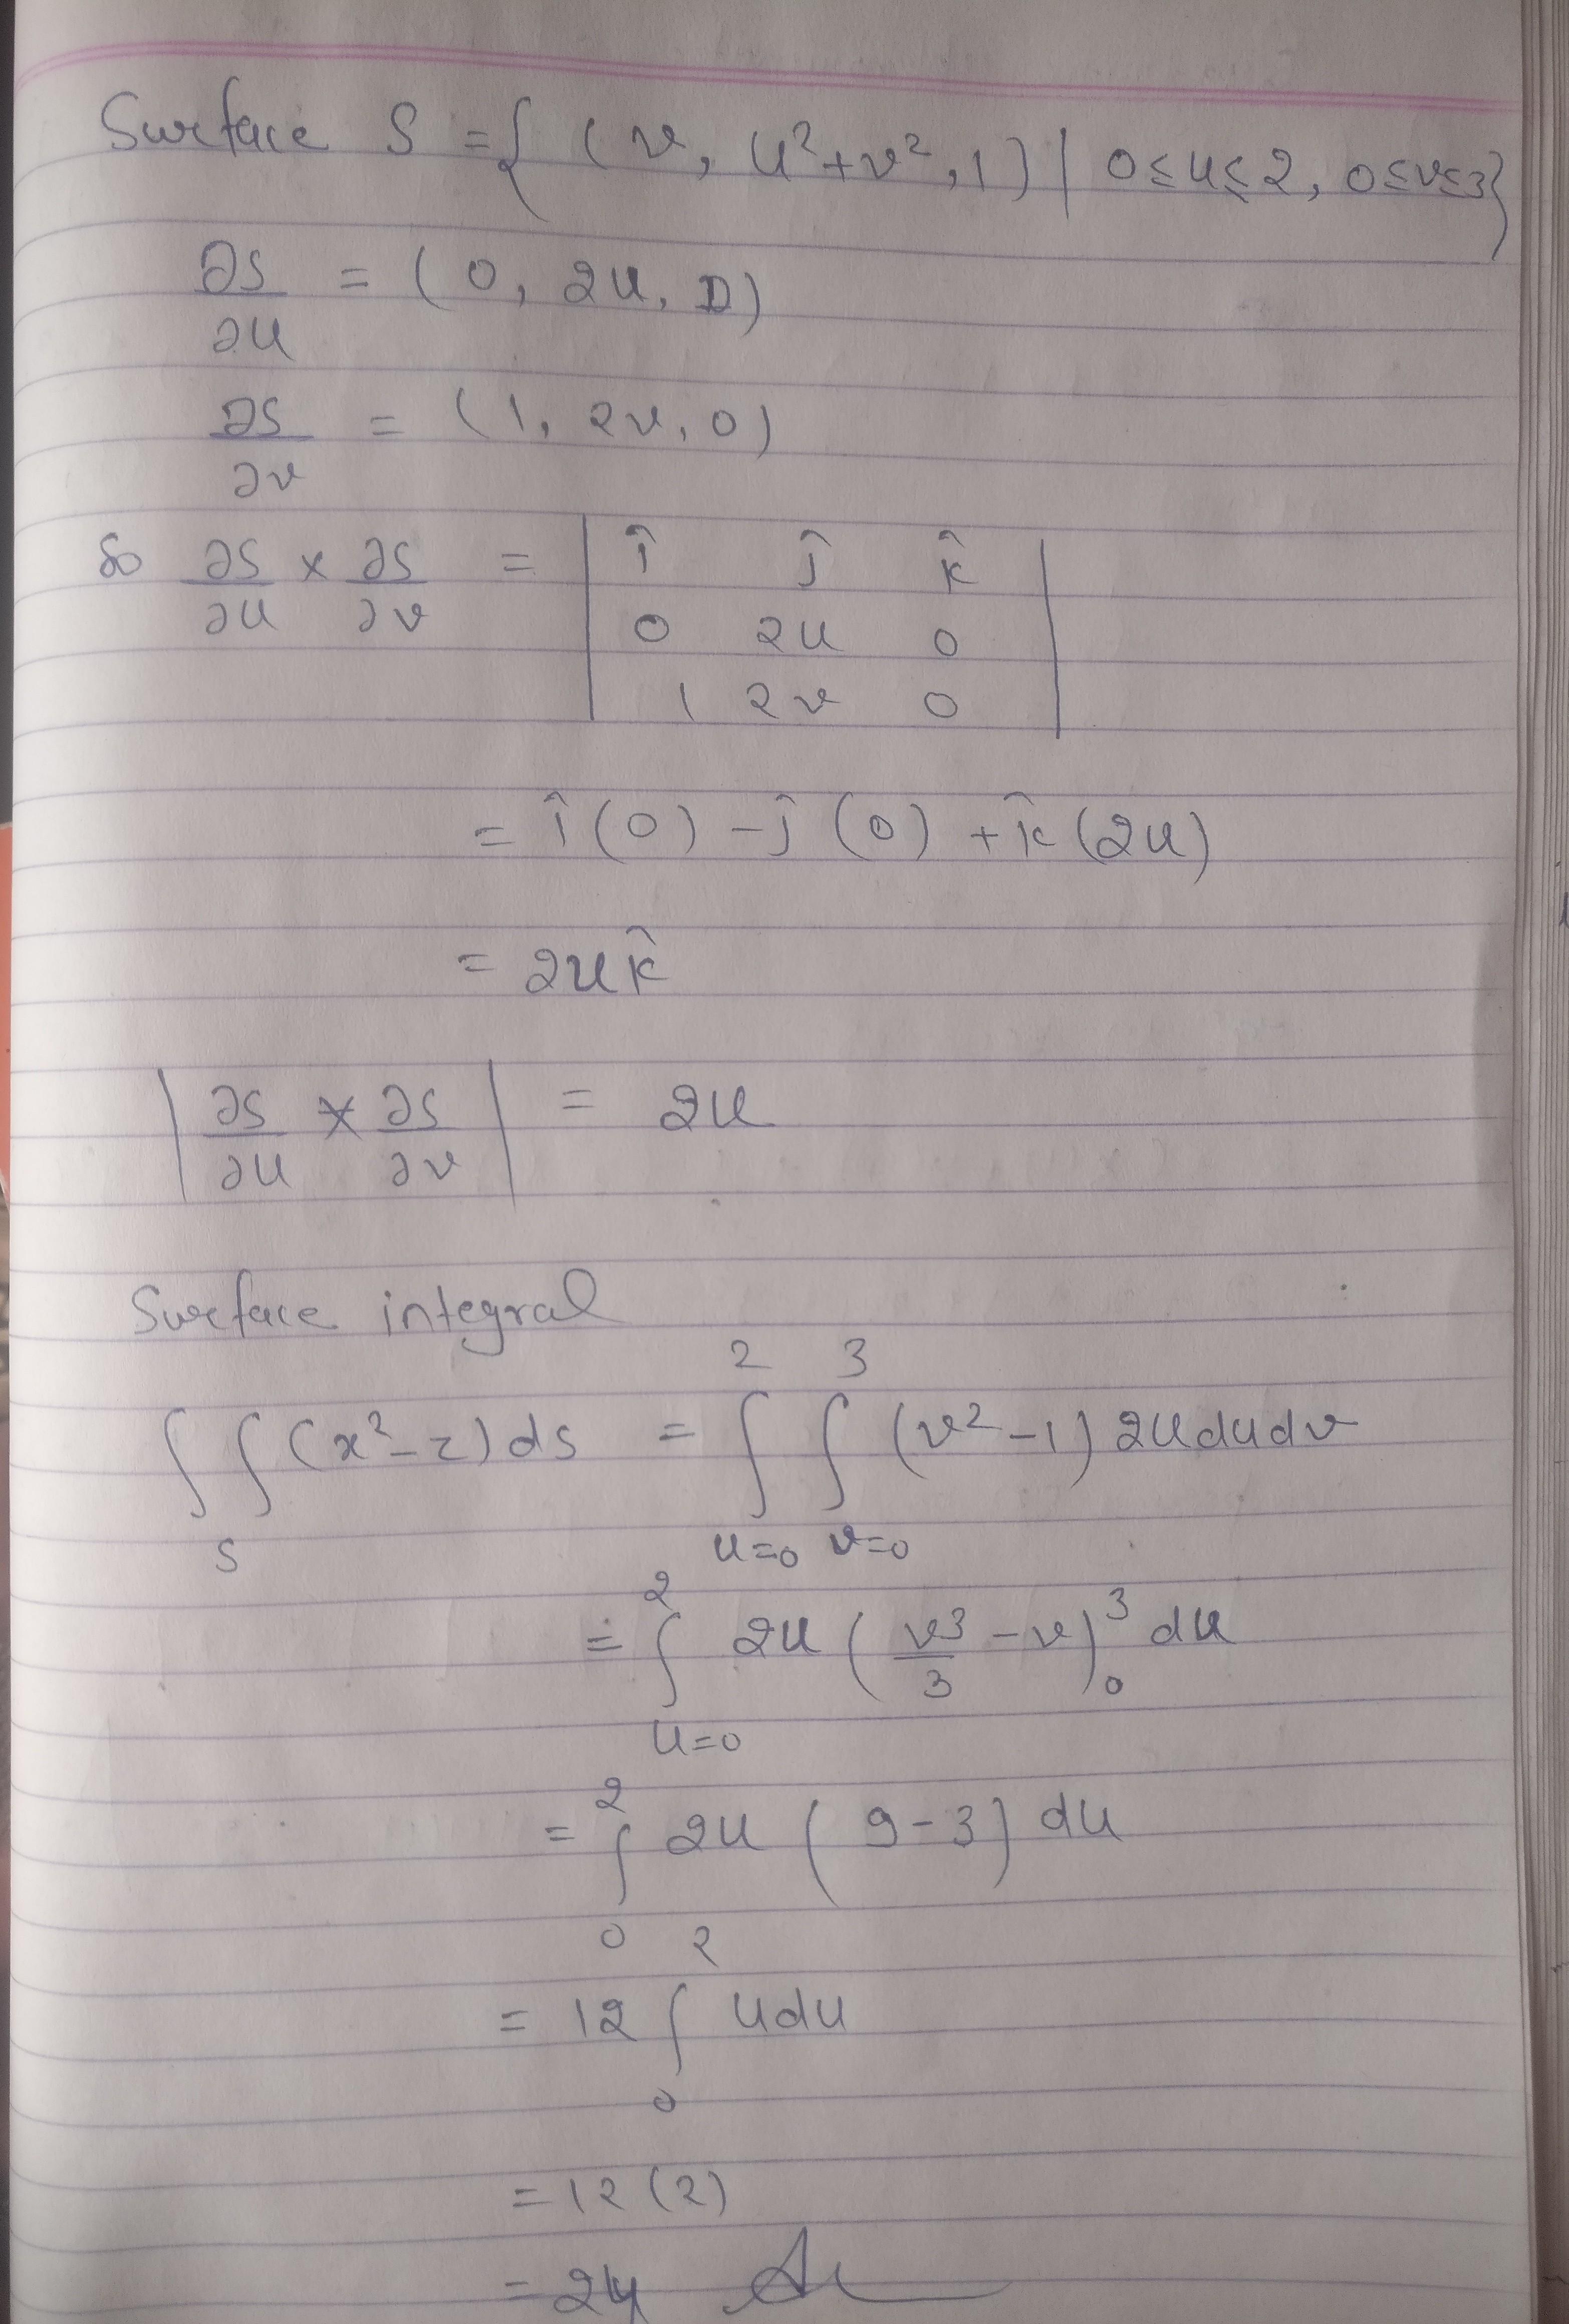 Surface S = { (v, u²+v², 1) | 0≤u≤2, 0≤v≤3}
∂S/∂u = (0, 2u, 0)
∂S/∂v = (1, 2v, 0)
So ∂S/∂u × ∂S/∂v = | î ĵ k̂ |
| 0 2u 0 |
| 1 2v 0 |
= î(0) - ĵ(0) + k̂(2u)
= 2u k̂
| ∂S/∂u × ∂S/∂v | = 2u
Surface integral
∫∫_S (x²-z) ds = ∫_{u=0}^{2} ∫_{v=0}^{3} (v²-1) 2u du dv
= ∫_{u=0}^{2} 2u (v³/3 - v)_0^3 du
= ∫_0^2 2u (9-3) du
= 12 ∫_0^2 u du
= 12 (2)
= 24